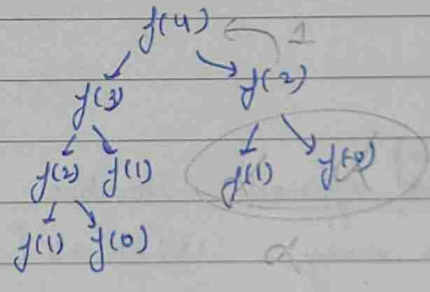 f(4) 1
f(3) f(2)
f(2) f(1) f(1) f(0)
f(1) f(0)